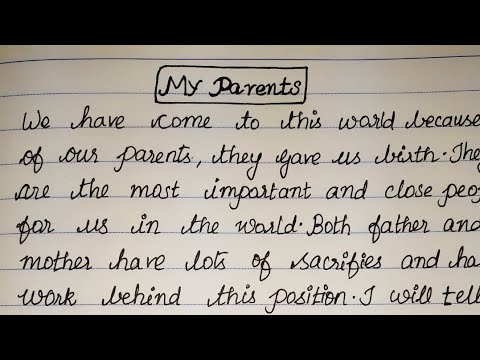 My Parents
We have come to this world because
of our parents, they gave us birth. They
are the most important and close peo
for us in the world. Both father and
mother have lots of sacrifies and ha
work behind this position. I will tell